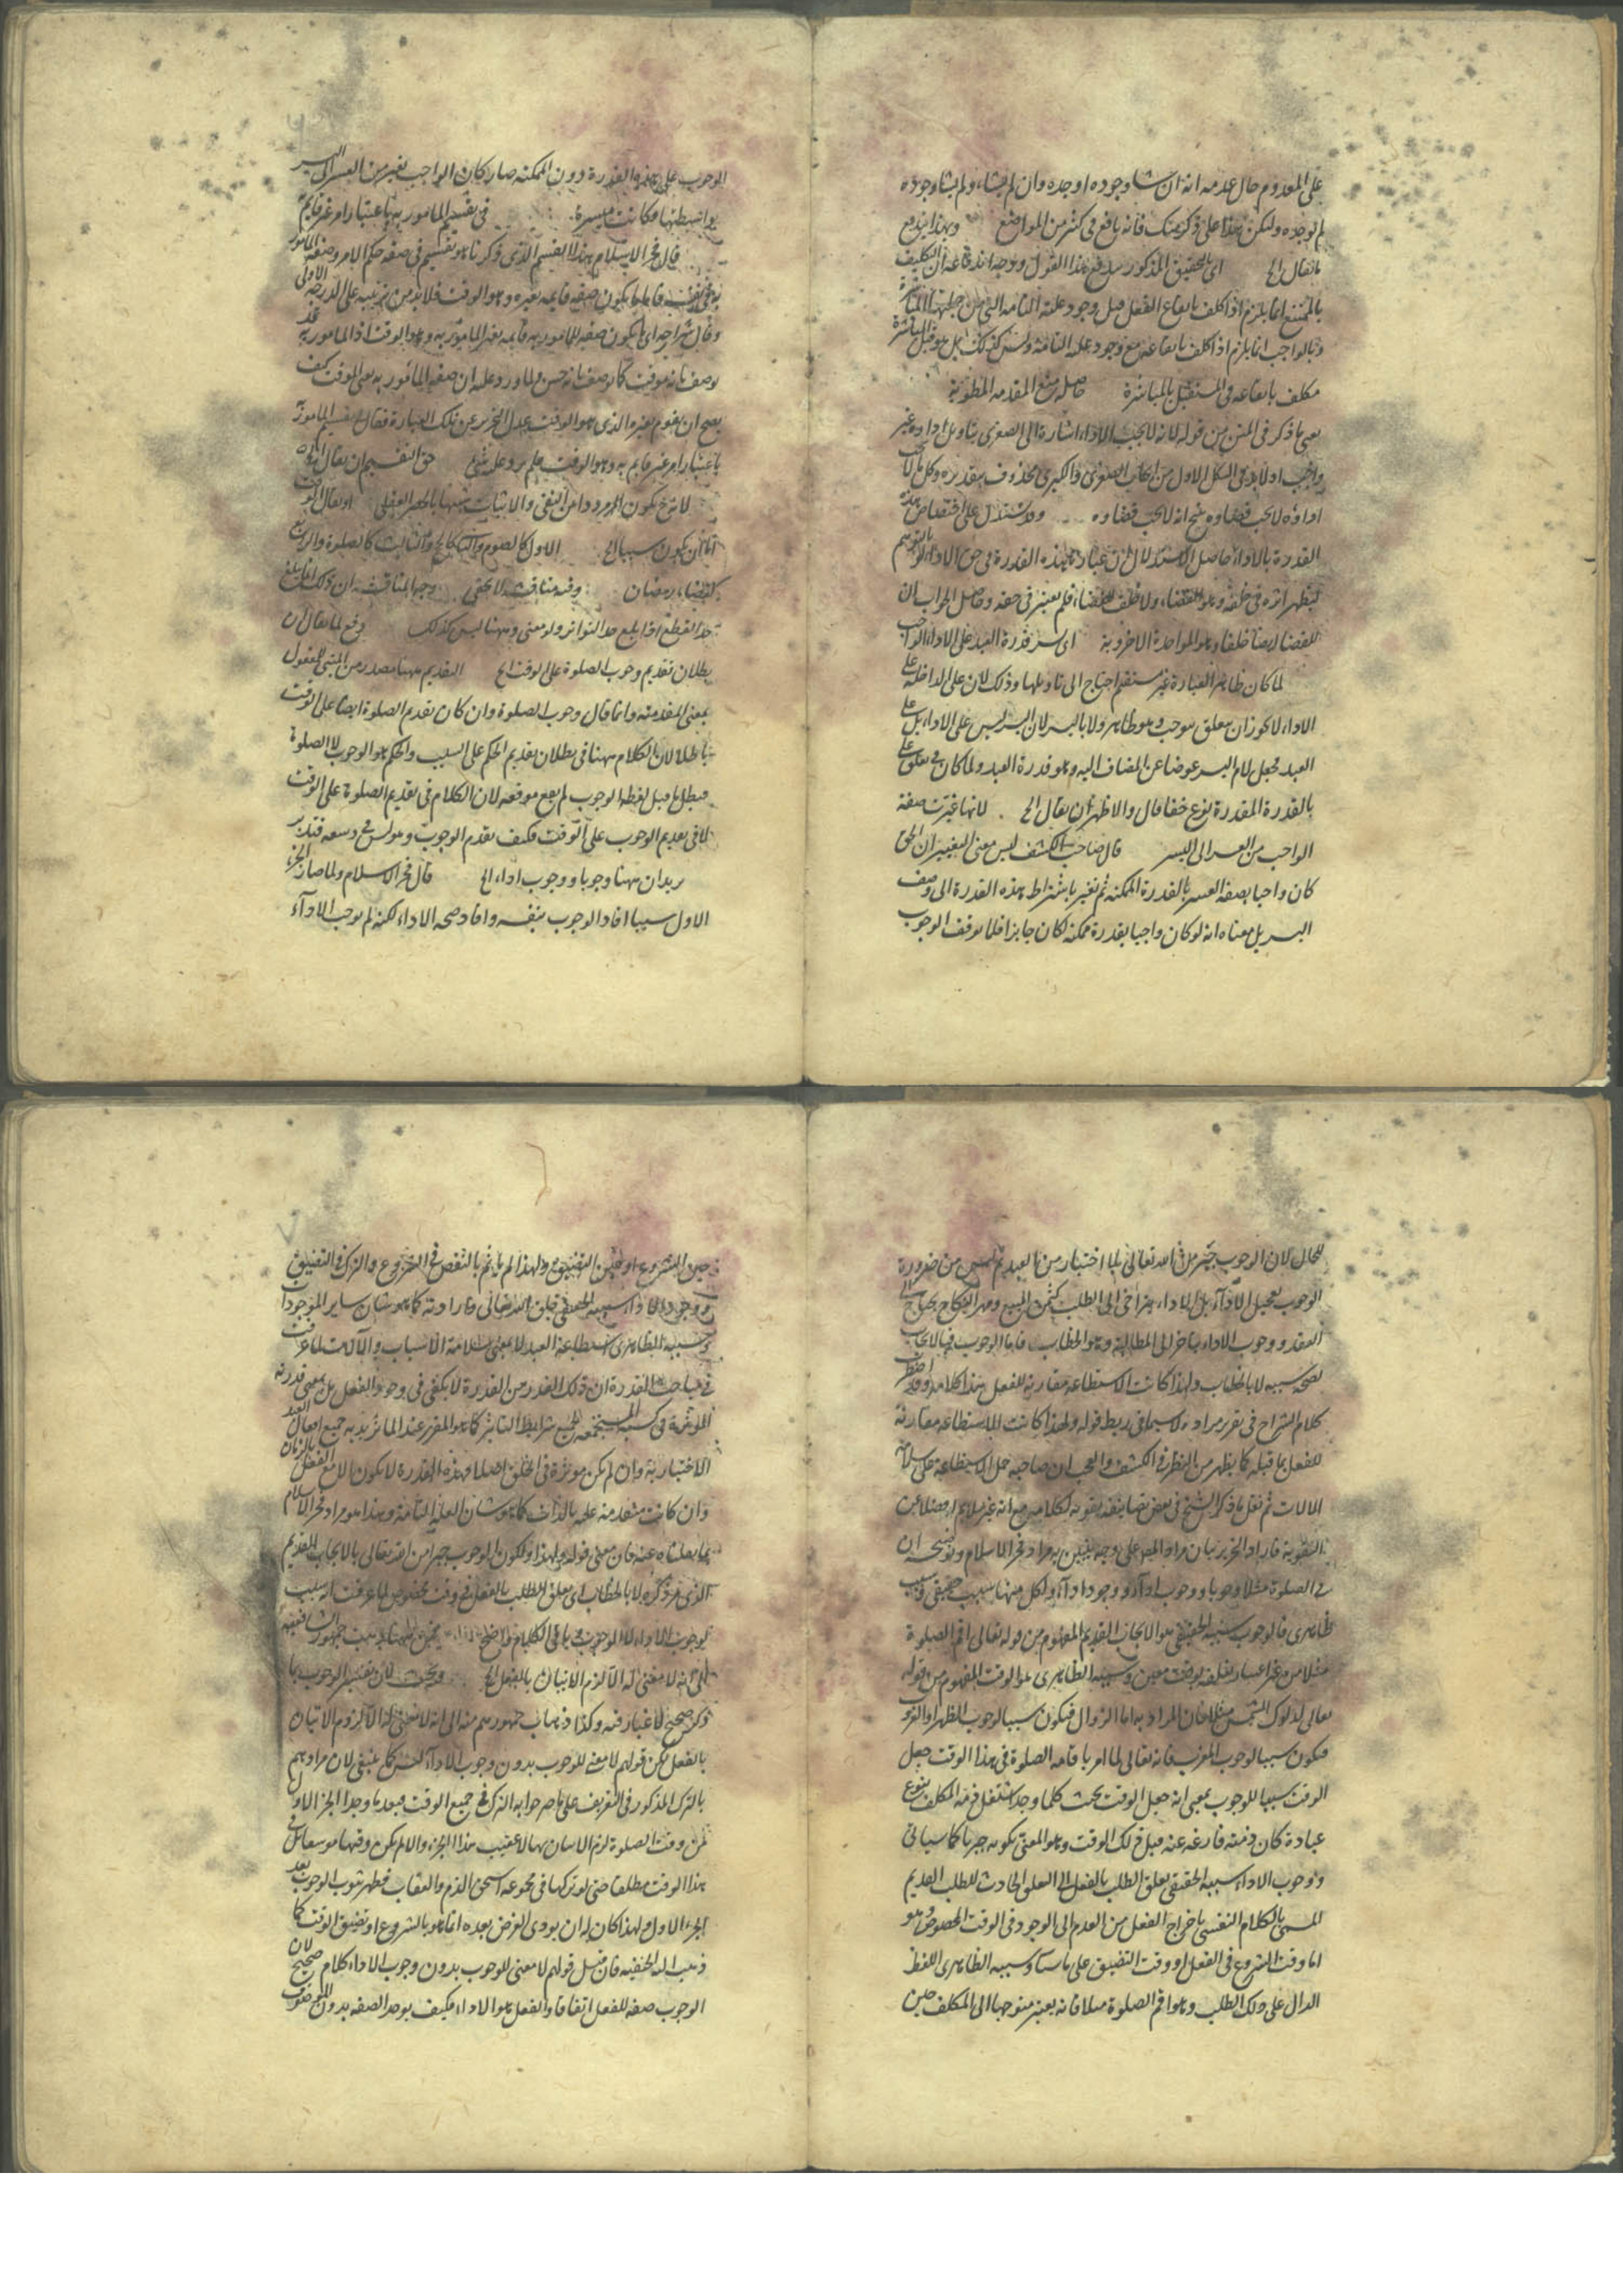 على المعدوم حال عدمه انه ان شا وجوده اوجده وان لم يشاء ولم يشا وجوده
لم يوجده وليكن هذا على ذكر منك فانه نافع فى كثير من المواضع وبهذا يندفع
ما يقال الخ اى بالتحقيق المذكور يندفع هذا القول ووجه اندفاعه ان التكليف
بالممتنع انما يلزم اذا كلف بايقاع الفعل قبل وجود علته التامه التى من جملتها
وبالواجب انما يلزم اذا كلف بايقاعه مع وجود علته التامة وليس كذلك بل هو قبل المباشرة
مكلف بايقاعه فى المستقبل بالمباشرة حاصله منع المقدمه المطوية
يعنى ما ذكر فى المتن من قوله لانه لا يجب الاداء اشارة الى الصغرى بتاويل اداوه غير
واجب اذ لا بد فى الشكل الاول من ايجاب الصغرى والكبرى محذوف تقديره وكل ما لا يجب
اداؤه لا يجب قضاوه ينتج انه لا يجب قضاوه وقد يستدل على اختصاص هذه
القدرة بالاداء حاصل الاستدلال ان اعتبار هذه القدرة فى حق الاداء
ليظهر اثره فى خلفه وهو القضاء ولا خلف للقضاء فلم يعتبر فى حقه وحاصل الجواب ان
للقضا ايضا خلفا وهو المواخذة الاخروية اى يسر قدرة العبد على الاداء الواجب
لما كان ظاهر العبارة غير مستقيم احتاج الى تاويلها وذلك لان على الداخلة على
الاداء لا يجوز ان يتعلق بيوجب وهو ظاهر ولا باليسر لان اليسر ليس على الاداء بل على
العبد فجعل لام اليسر عوضا عن المضاف اليه وهو قدرة العبد ولما كان فى تعلق على
بالقدرة المقدرة نوع خفا قال والاظهر ان يقال الخ لانها غيرت صفة
الواجب من العسر الى اليسر قال صاحب الكشف ليس معنى التغيير ان الحق
كان واجبا بصفة العسر بالقدرة الممكنه ثم تغير باشتراط هذه القدرة الى وصف
اليسر بل معناه انه لو كان واجبا بقدرة ممكنه لكان جايزا فلما توقف الوجوب
الوجوب على هذه القدرة دون الممكنه صار كان الواجب تغير من العسر الى اليسر
بواسطتها فكانت ميسرة فى تقسيم المامور به باعتبار امر غير قايم
قال فخر الاسلام هذا التقسيم الذى ذكرنا هو تقسيم فى صفة حكم الامر وصفة المامور
به فى نفسه فاما ما يكون صفة قايمه بغيره وهو الوقت فلا بد من ترتيبه على الدرجه الاولى
وقال شراحه اى ما يكون صفة للمامور به قايمه بغير المامور به وهو الوقت اذ المامور به قد
يوصف بانه موقت كما يوصف بانه حسن ولما ورد عليه ان صفة المامور به هى الموقت كيف
يصح ان يقوم بغيره الذى هو الوقت عدل التحرير عن تلك العبارة فقال تقسيم المامور
باعتبار امر غير قايم به وهو الوقت فلم يرد عليه شئ حق التقسيم ان يقال الخ
لانه ح يكون الترديد دائرا بين النفى والاثبات منبئها بالحصر العقلى او يقال الوقت
اما ان يكون سببا الخ الاول كالصوم والثانى كالحج والثالث كالصلوة والرابع
كقضاء رمضان وفيه مناقشة لا تخفى وجه المناقشة ان ذلك انما يبلغ
حد القطع اذا بلغ حد التواتر ولو معنى وههنا ليس كذلك دفع لما يقال ان
بطلان تقديم وجوب الصلوة على الوقت الخ التقديم ههنا مصدر من المبنى للمفعول
بمعنى المقدمية وانما قال وجوب الصلوة وان كان تقديم الصلوة ايضا على الوقت
باطلا لان الكلام ههنا فى بطلان تقديم الحكم على السبب والحكم هو الوجوب لا الصلوة
فبطل ما قيل لفظه الوجوب لم يقع موقعه لان الكلام فى تقديم الصلوة على الوقت
لا فى تقديم الوجوب على الوقت فكيف تقدم الوجوب وهو ليس فى وسعه فتدبر
يريد ان ههنا وجوبا ووجوب اداء الخ قال فخر الاسلام ولما صار الجزء
الاول سببا افاد الوجوب بنفسه وافاد صحة الاداء لكنه لم يوجب الاداء
للحال لان الوجوب جبر من الله تعالى بلا اختيار من العبد ثم ليس من ضرورة
الوجوب تعجيل الاداء بل الاداء متراخ الى الطلب كثمن المبيع ومهر النكاح يجب
العقد ووجوب الاداء يتاخر الى المطالبة وهو الخطاب فاما الوجوب فبالايجاب
لصحة سببه لا بالخطاب ولهذا كانت الاستطاعة مقارنة للفعل هذا كلامه وقد اضطرب
كلام الشراح فى تقرير مراده لا سيما فى ربط قوله ولهذا كانت الاستطاعة مقارنة
للفعل بما قبله كما يظهر من النظر فى الكشف والعجب ان صاحبه حمل الاستطاعة على سلامة
الالات ثم نقل ما ذكر الشيخ فى بعض تصانيفه تقوية لكلامه مع انه غير ملايم له فضلا عن
التقوية فاراد التحرير بيان مراد المص على وجه يتبين به مراد فخر الاسلام وتوضيحه ان
فى الصلوة مثلا وجوبا ووجوب اداء ووجود اداء ولكل منها سبب حقيقى وسبب
ظاهرى فالوجوب سببه الحقيقى هو الايجاب القديم المفهوم من قوله تعالى اقم الصلوة
مثلا من غير اعتبار تعلقه بوقت معين وسببه الظاهرى هو الوقت المفهوم من قوله
تعالى لدلوك الشمس مثلا فان المراد به اما الزوال فيكون سببا لوجوب الظهر او الغروب
فيكون سببا لوجوب المغرب فانه تعالى لما امر باقامة الصلوة فى هذا الوقت جعل
الوقت سببا للوجوب بمعنى انه جعل الوقت بحيث كلما وجد اشتغل ذمة المكلف بنوع
عبادة كان ذمته فارغه عنه قبل ذلك الوقت وهو المعنى بكونه جبريا كما سياتى
ووجوب الاداء سببه الحقيقى تعلق الطلب بالفعل اى التعلق الحادث للطلب القديم
المسمى بالكلام النفسى باخراج الفعل من العدم الى الوجود فى الوقت المخصوص وهو
اما وقت الشروع فى الفعل او وقت التضيق على ما سياتى وسببه الظاهرى اللفظ
الدال على ذلك الطلب وهو اقم الصلوة مثلا فانه يعتبر متوجها الى المكلف حين
حين الشروع او حين التضيق ولهذا لم ياثم بالنقص فى الشروع والترك والتضيق
ووجود الاداء سببه الحقيقى خلق الله تعالى وارادته كما هو شان ساير الموجودات
وسببه الظاهرى استطاعة العبد لا بمعنى سلامة الاسباب والآلات لما عرفت
فى مباحث القدرة ان ذلك القدر من القدرة لا يكفى فى وجود الفعل بل بمعنى قدرته
المؤثرة فى كسبه المستجمعه لجميع شرايط التاثير كما هو المقرر عند الماتريديه جميع افعال العبد
الاختيارية وان لم يكن موثرة فى الخلق اصلا فهذه القدرة لا يكون الا مع الفعل بالزمان
وان كانت متقدمة عليه بالذات كما هو شان العلة التامة وهذا هو مراد فخر الاسلام
بما نقلناه عنه فان معنى قوله ولهذا ولكون الوجوب جبرا من الله تعالى بالايجاب القديم
الذى مر ذكره لا بالخطاب اى تعلق الطلب بالفعل فى وقت مخصوص لما عرفت انه سبب
لوجوب الاداء لا الوجوب وباقى الكلام واضح جمهور الشافعية
الى انه لا معنى له الا لزوم الاتيان بالفعل الخ وبحث لان تفسير الوجوب بما
ذكر صحيح لا غبار فيه وكذا ذهاب جمهورهم منه الى انه لا معنى له الا لزوم الاتيان
بالفعل لكن قولهم لا معنى للوجوب بدون وجوب الاداء ليس كما ينبغى لان مرادهم
بالترك المذكور فى التعريف على ما صرحوا به الترك فى جميع الوقت فبعد ما وجد الجزء الاول
من وقت الصلوة لزم الاتيان بها لا عقيب هذا الجزء والا لم يكن وقتها موسعا بل فى
هذا الوقت مطلقا حتى لو تركها فى مجموعه استحق الذم والعقاب فظهر ثبوت الوجوب بعد
الجزء الاول ولهذا كان له ان يودى الفرض بعده اما هو بالشروع او تضيق الوقت كما
ذهب اليه الحنفيه فان قيل قولهم لا معنى للوجوب بدون وجوب الاداء كلام صحيح لان
الوجوب صفة للفعل اتفاقا والفعل هو الاداء فكيف يوجد الصفه بدون الموصوف